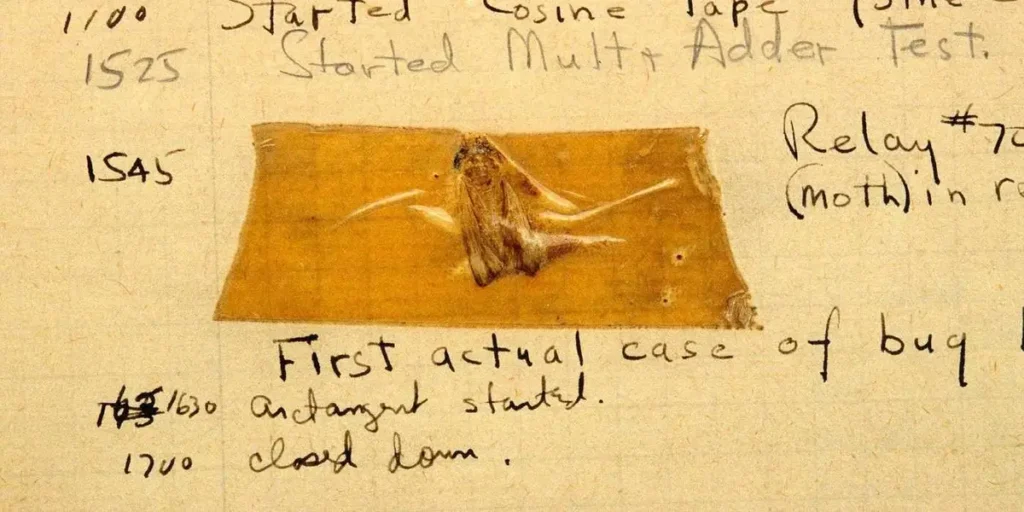 1100 Started Cosine Tape (Sine
1525 Started Mult + Adder Test.
1545 Relay #70
(moth) in
First actual case of bug
1630 arctangent started.
1700 closed down.